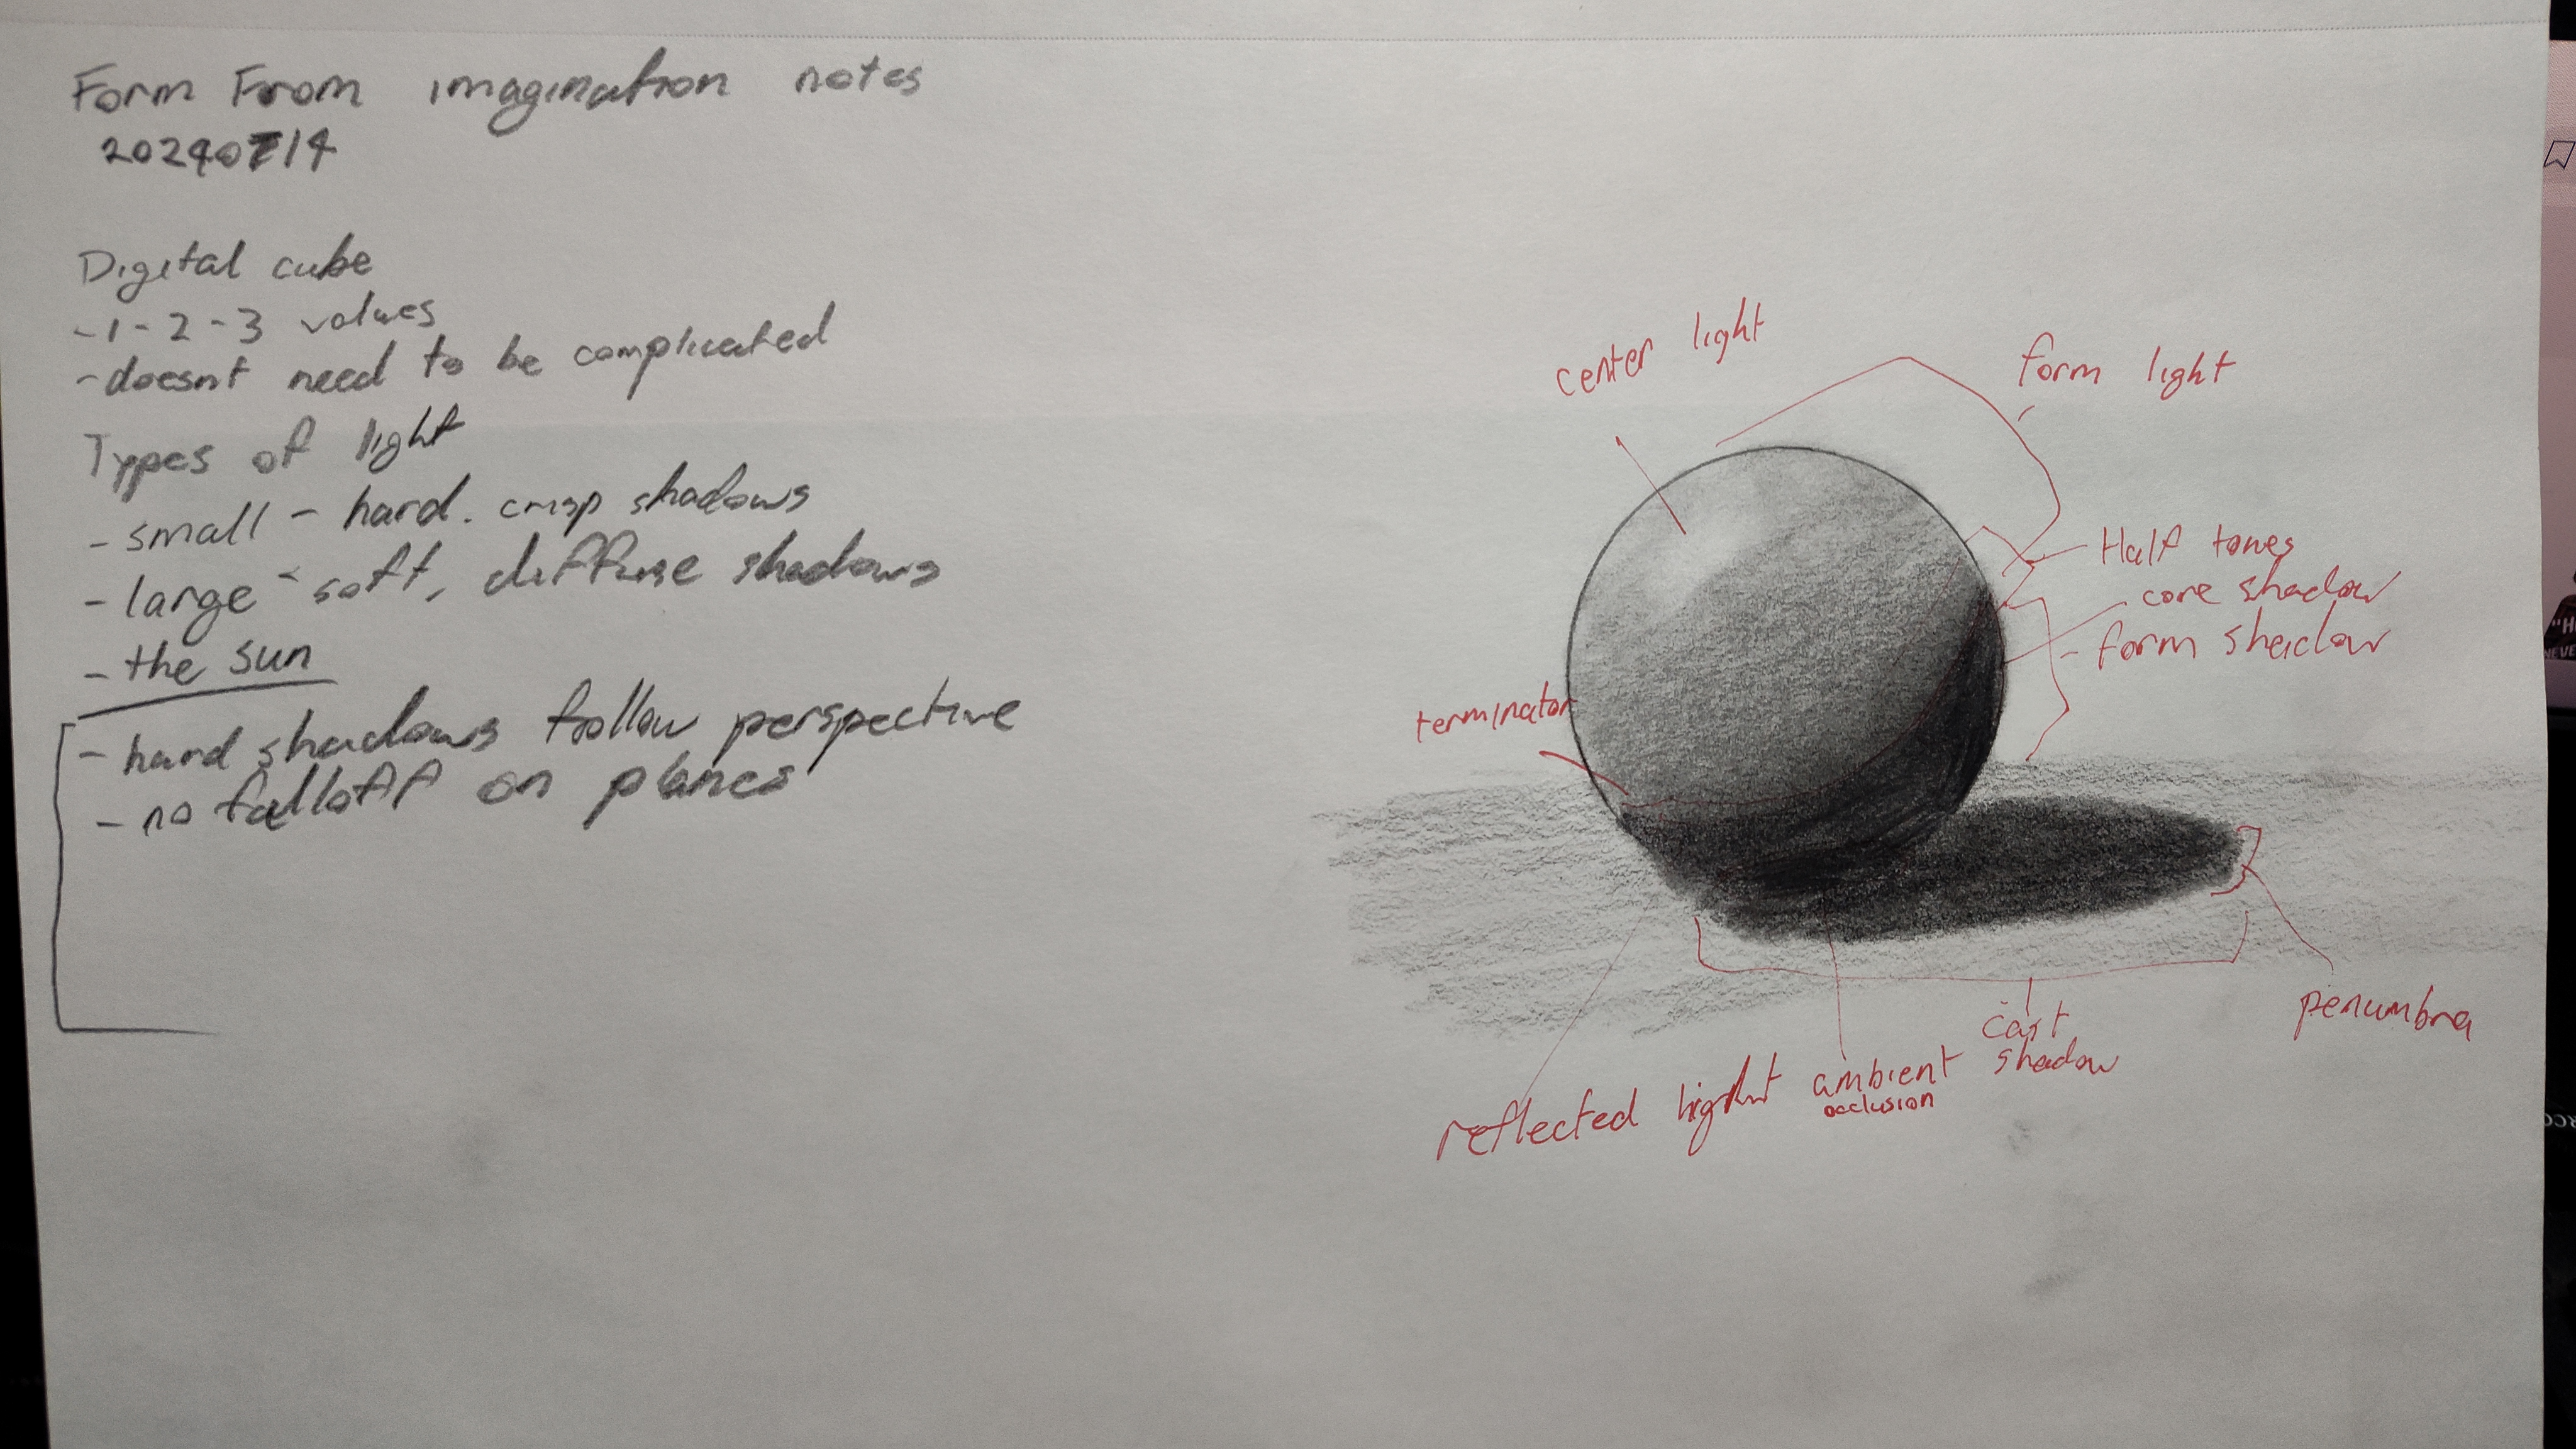 Form From imagination notes
20240714
Digital cube
-1-2-3 values
-doesnt need to be complicated
Types of light
-small - hard. crisp shadows
-large - soft, diffuse shadows
-the sun
-hard shadows follow perspective
-no falloff on planes
center light
form light
Half tones
core shadow
- form shadow
terminator
penumbra
cast
shadow
ambient
occlusion
reflected light
"H
NEVE